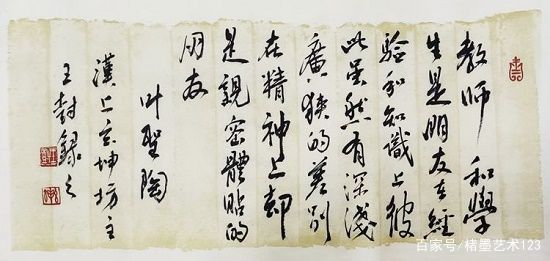 教师和學
生是朋友在經
驗和知識上彼
此虽然有深淺
廣狹的差别
在精神上却
是親密體貼的
朋友
叶聖陶
漢上坤坊主
王封錄之
百家号/楮墨艺术123